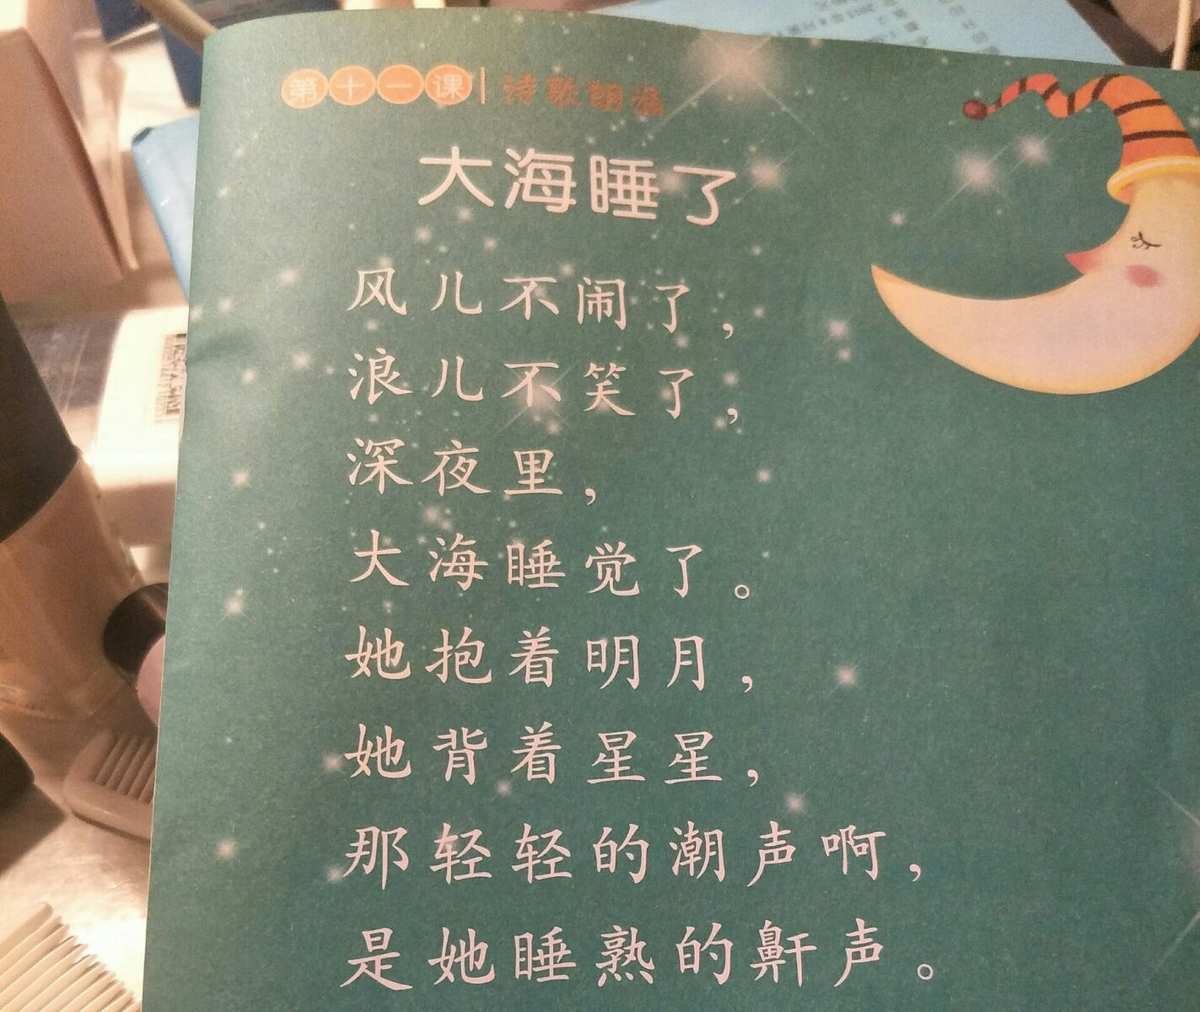 第十一课 诗歌朗诵
大海睡了
风儿不闹了，
浪儿不笑了，
深夜里，
大海睡觉了。
她抱着明月，
她背着星星，
那轻轻的潮声啊，
是她睡熟的鼾声。